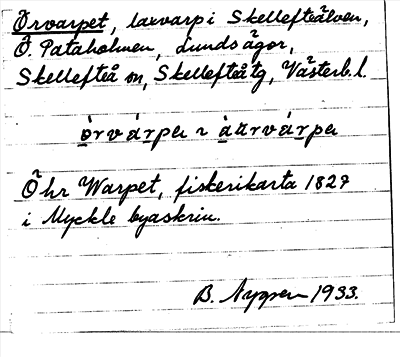 Örvarpet, laxvarp i Skellefteälven,
Ö. Pataholmen, Lunds ägor,
Skellefteå sn, Skellefteå tg, Västerb. l.
òrvárper ~ àttrvárper
Öhr Warpet, fiskerikarta 1827
i Myckle byaskrin.
B. Nygren 1933.